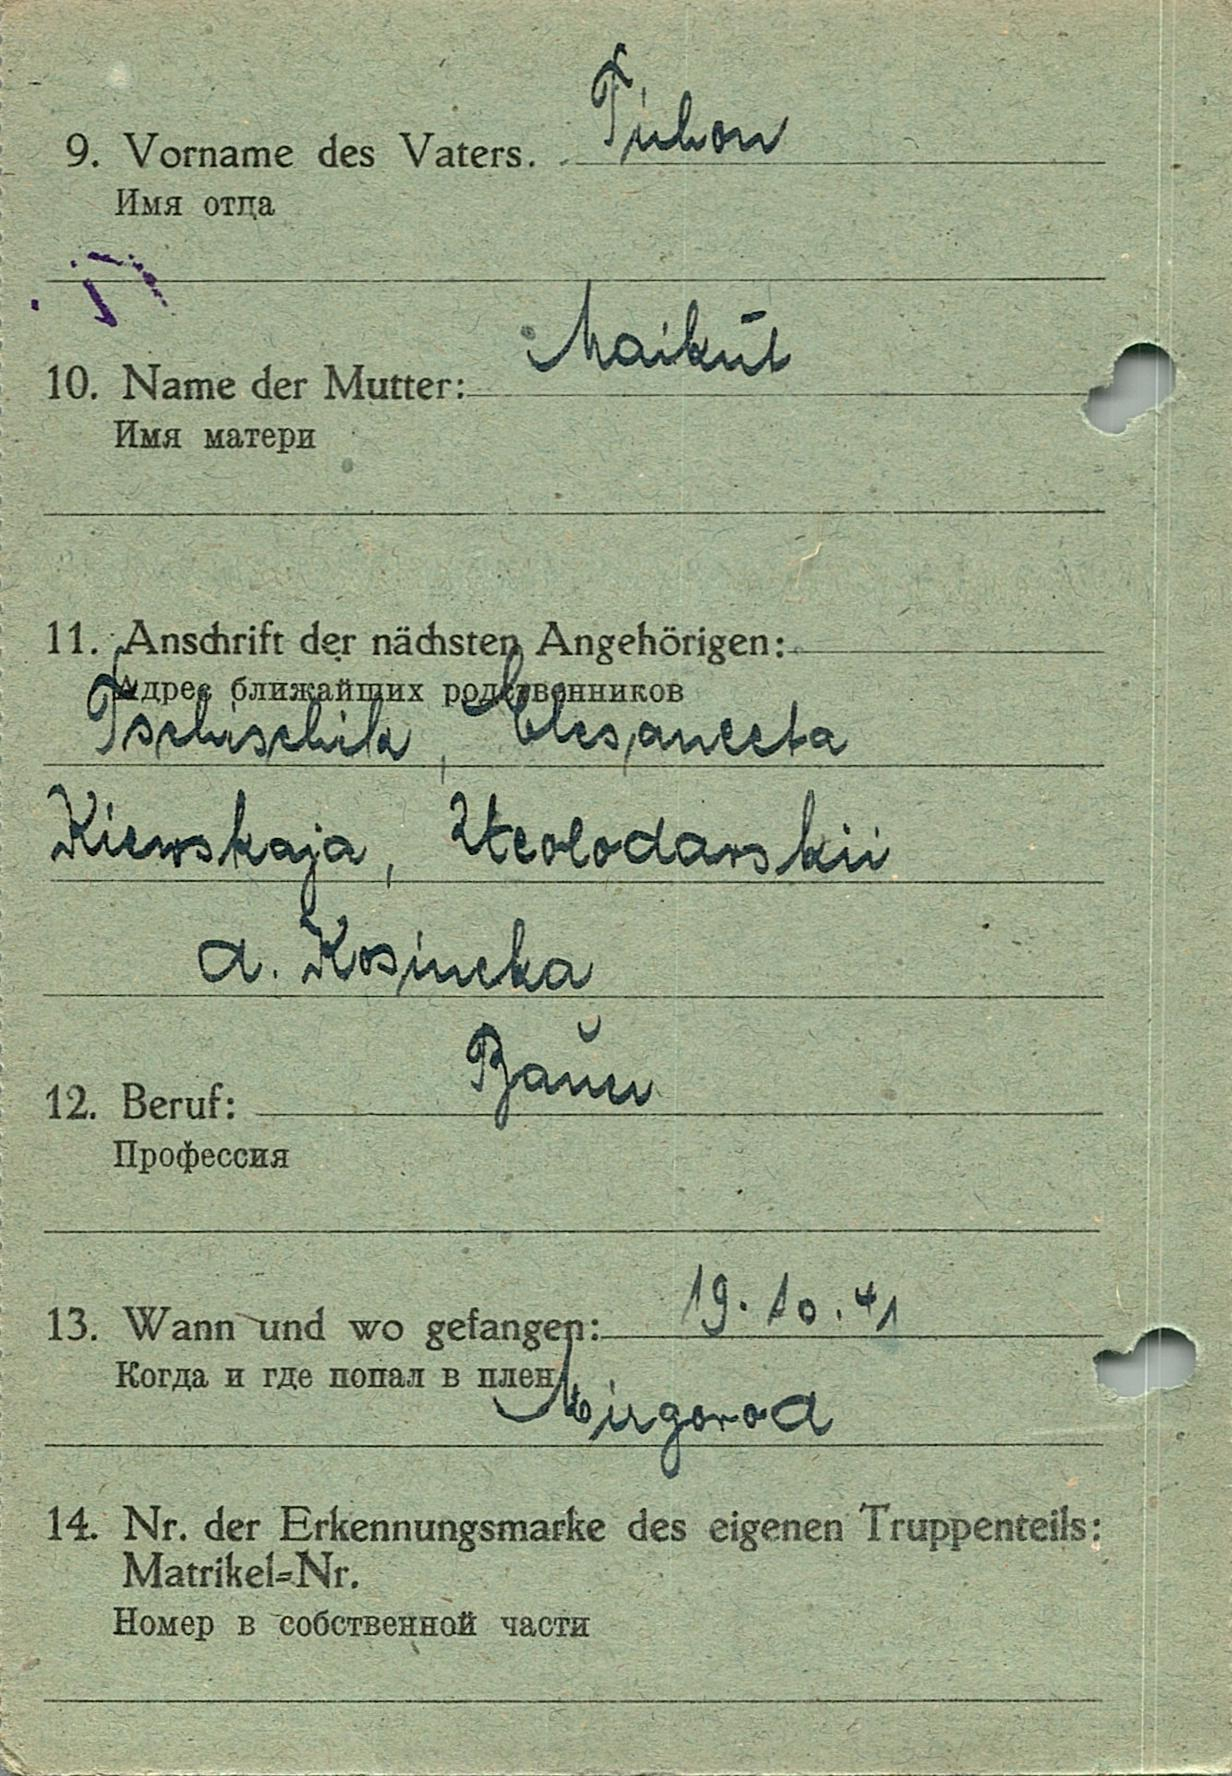 9. Vorname des Vaters. Tichon
Имя отца
10. Name der Mutter: Maikut
Имя матери
11. Anschrift der nächsten Angehörigen:
Адрес ближайших родственников
Tschischik,
Kiewskaja,
d. Kosincka
12. Beruf: Bauer
Профессия
13. Wann und wo gefangen: 19.10.41
Когда и где попал в плен
Mirgorod
14. Nr. der Erkennungsmarke des eigenen Truppenteils:
Matrikel-Nr.
Номер в собственной части